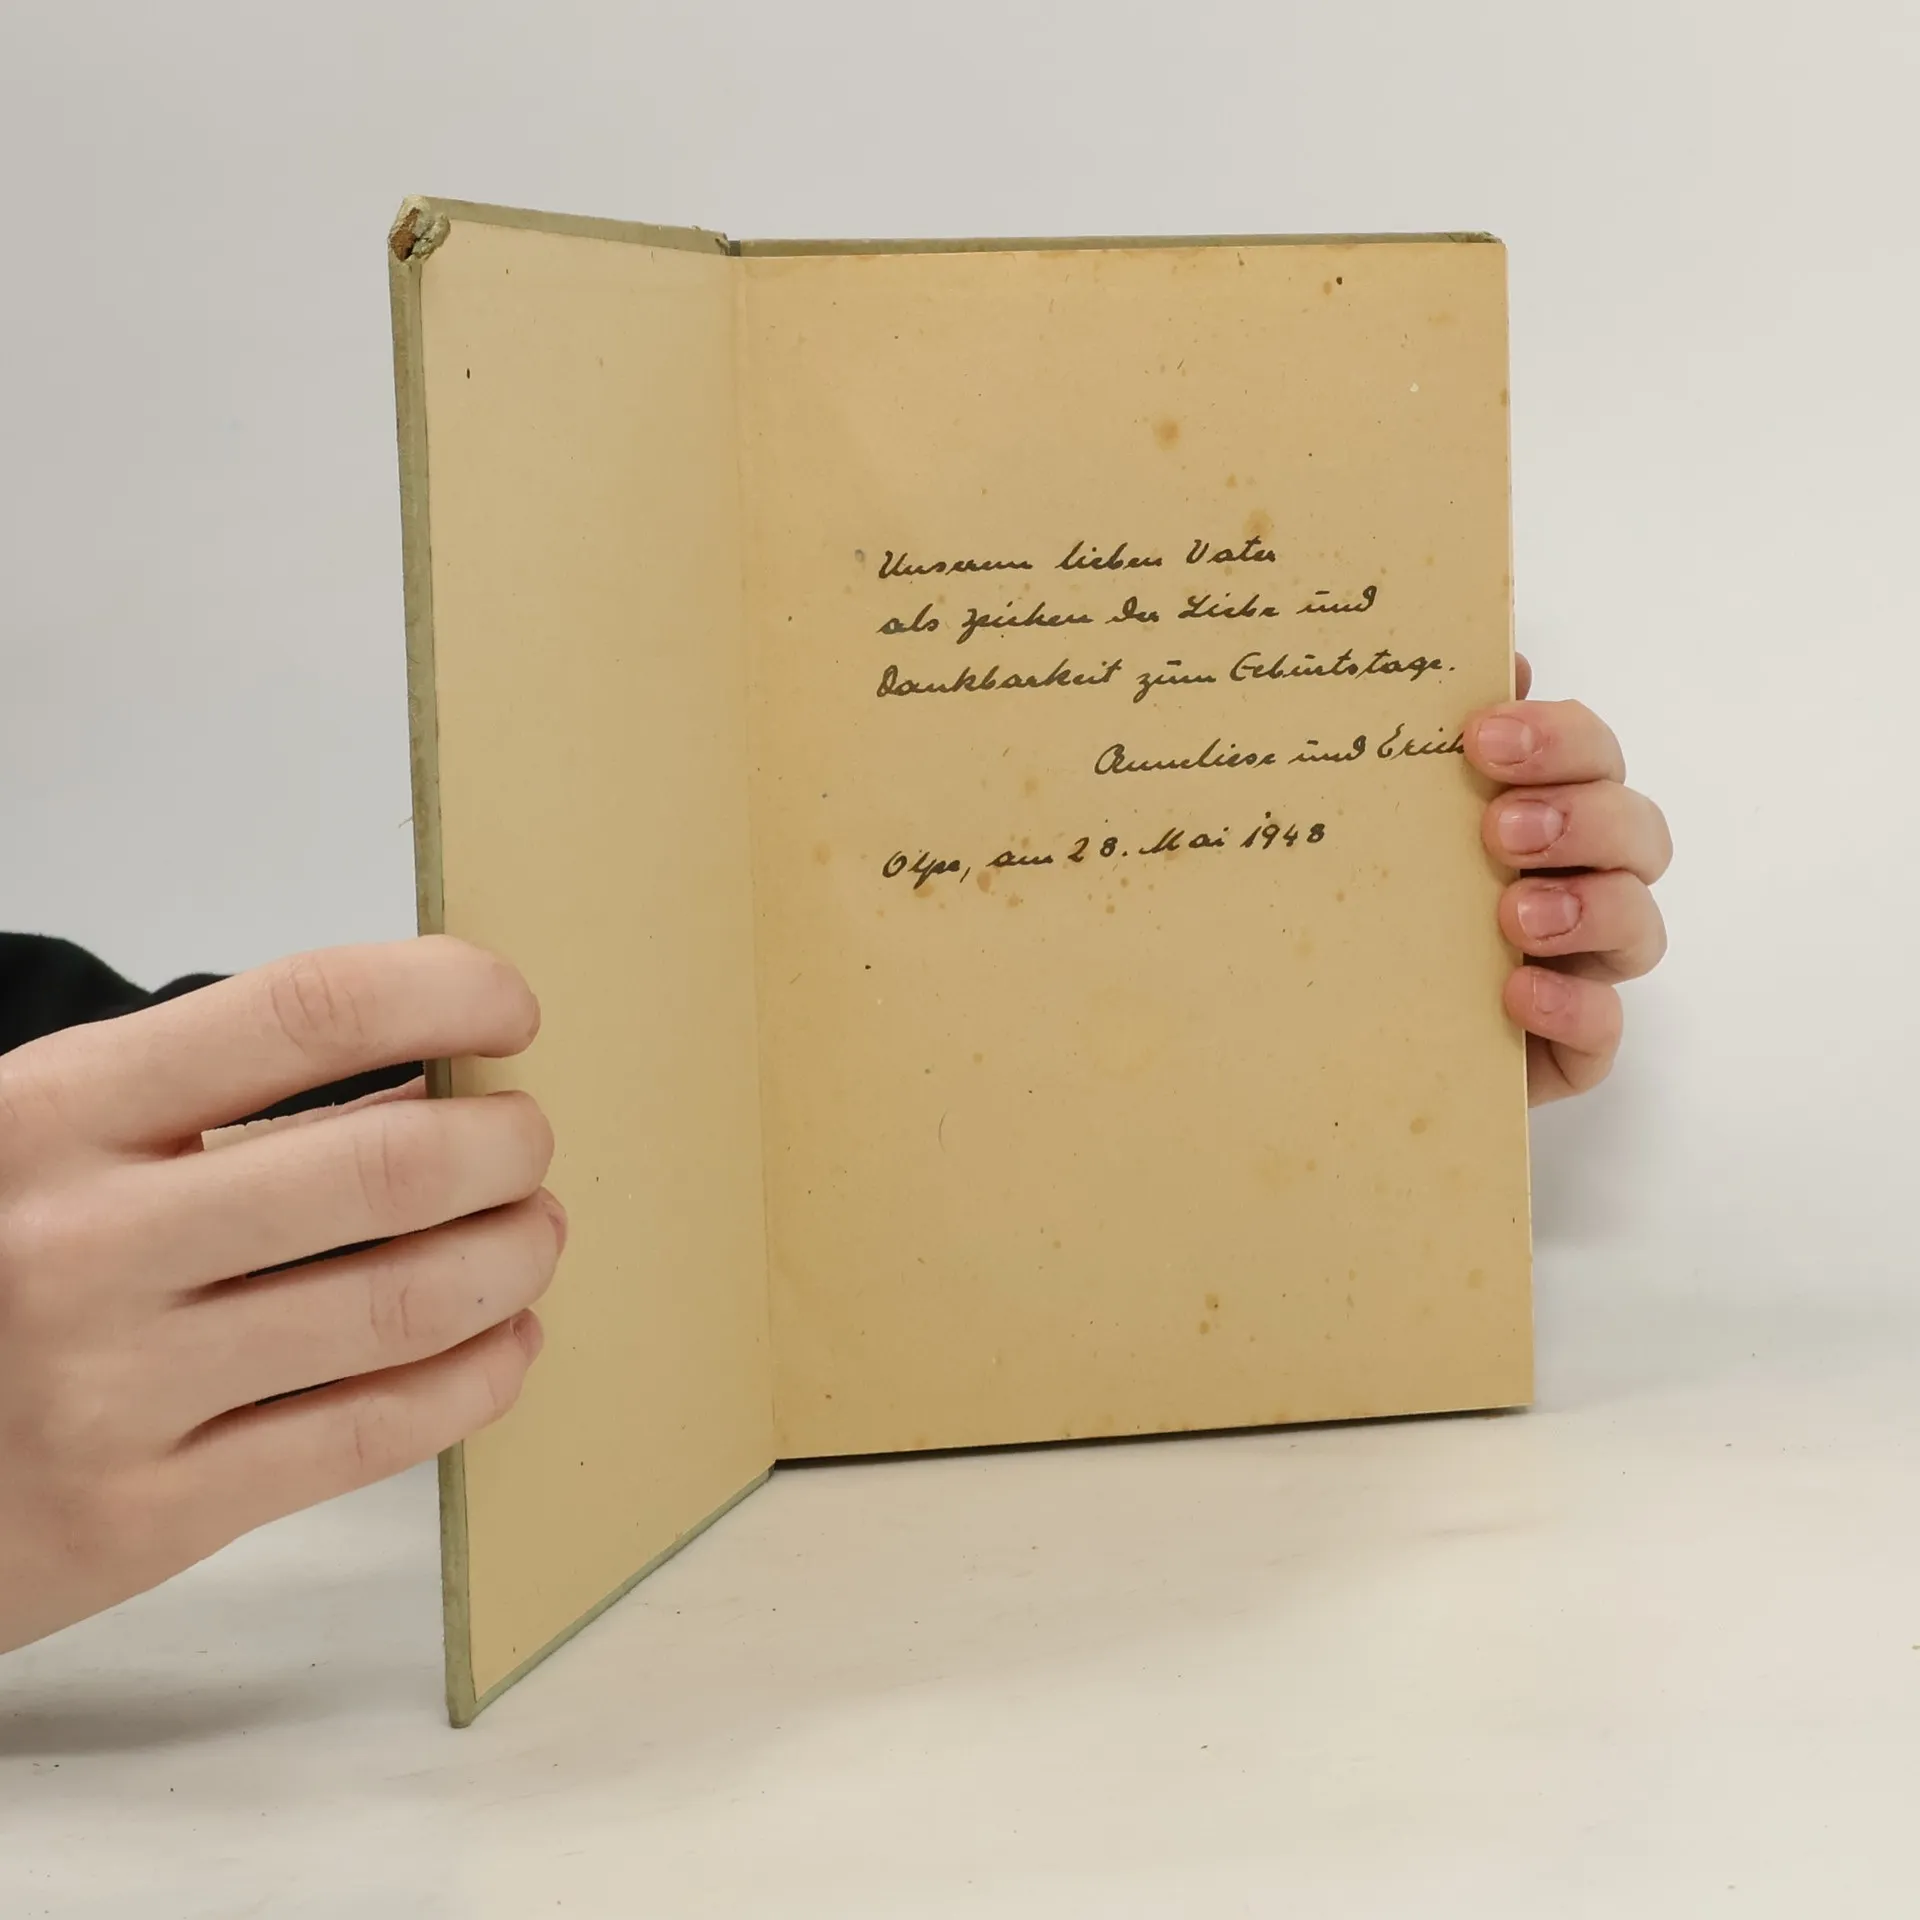 Unserem lieben Vater
als Zeichen der Liebe und
Dankbarkeit zum Geburtstage.
Anneliese und Erich
Olpe, am 28. Mai 1948